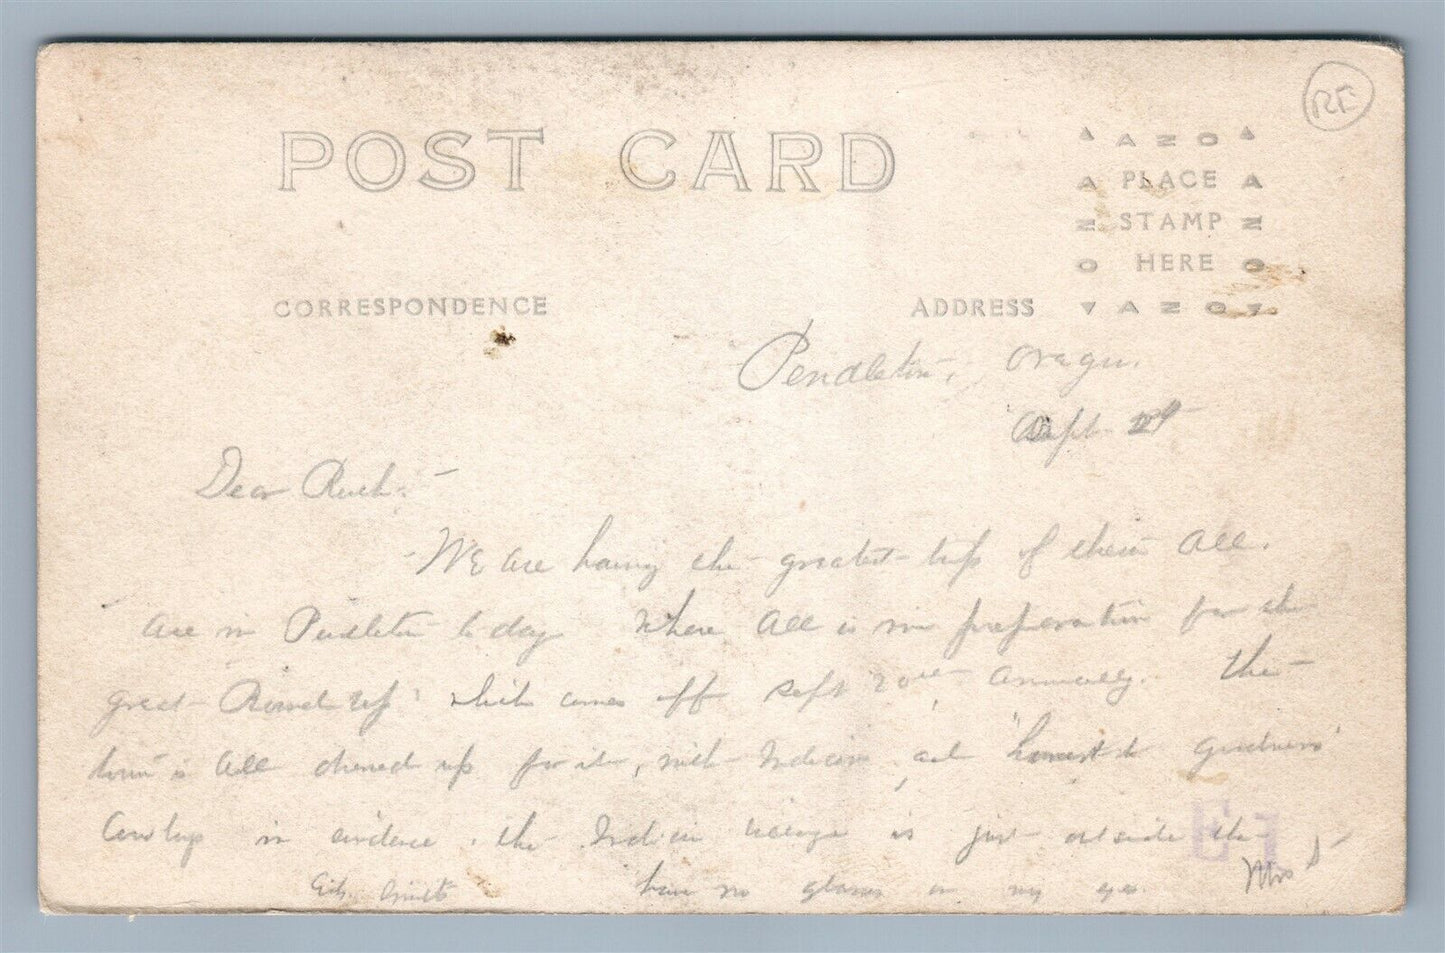 RE
POST CARD
AZO
PLACE
STAMP
HERE
AZO
CORRESPONDENCE ADDRESS
Pendleton,
Sept
Dear Ruth:-
We are having the greatest trip of them all.
are in Pendleton to day Where all is in preparation for the
great Round up which comes off Sept 20th annually. The
town is all dressed up for it, with Indians, and 'honest to goodness'
Cowboys in evidence. the Indian village is just outside the
City limits have no glasses on my eyes. Mrs